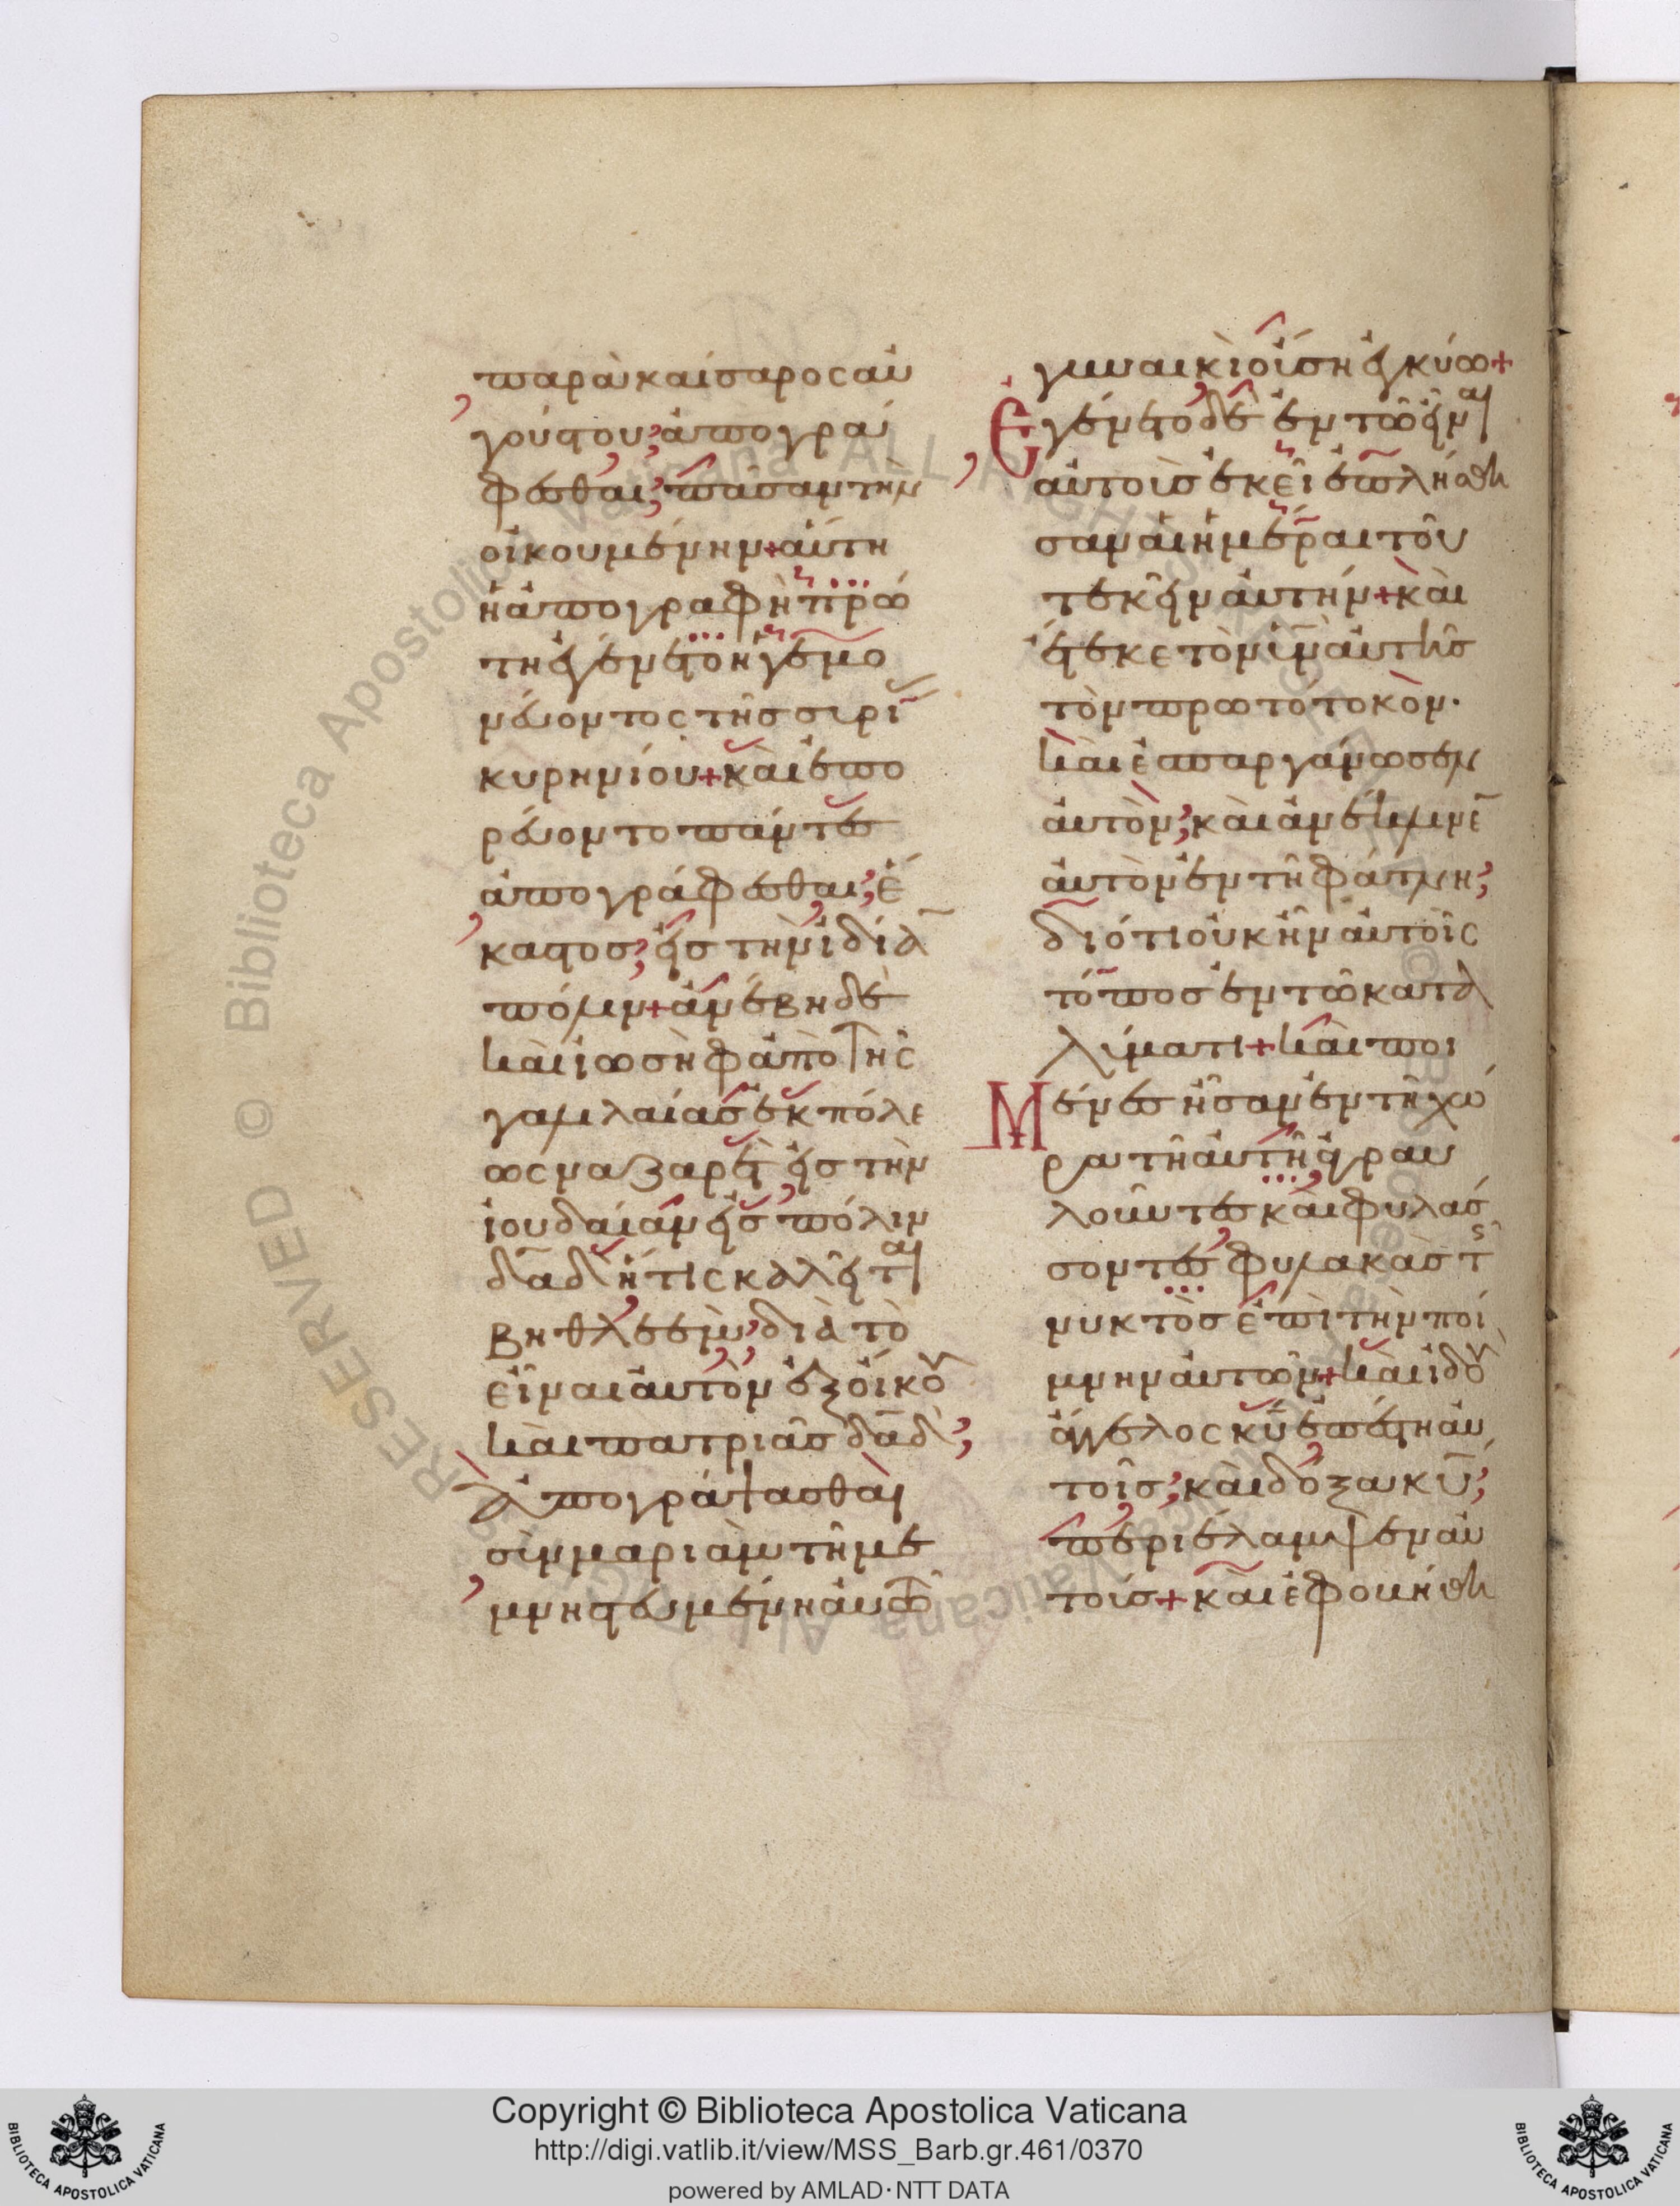 παρὰ καίσαρος αὐ
γούστου, ἀπογρά
φεσθαι, πᾶσαν τὴν
οἰκουμένην + αὕτη
ἡ ἀπογραφὴ πρώ
τη ἐγένετο ἡγεμο
νεύοντος τῆς συρί
κυρηνίου + καὶ ἐπο
ρεύοντο πάντες
ἀπογράφεσθαι, ἕ
καστος, εἰς τὴν ἰδίαν
πόλιν + ἀνέβη δὲ
καὶ ἰωσὴφ ἀπὸ τῆς
γαλιλαίας ἐκ πόλε
ως ναζαρὲτ εἰς τὴν
ἰουδαίαν εἰς πόλιν
δαδ ἥτις καλεῖται
βηθλεεμ, διὰ τὸ
εἶναι αὐτὸν ἐξ οἴκου
καὶ πατριᾶς δαδ,
ἀπογράψασθαι
σὺν μαριὰμ τῆ με
μνηστευμένη αὐτῶ
γυναικὶ οὔση ἐγκύω +
Ἐγένετο δὲ ἐν τῶ εἶναι
αὐτοὺς ἐκεῖ ἐπλήσθη
σαν αἱ ἡμέραι τοῦ
τεκεῖν αὐτήν + καὶ
ἔτεκε τὸν υν αὐτῆς
τὸν πρωτότοκον.
καὶ ἐσπαργάνωσεν
αὐτὸν, καὶ ἀνέκλινε
αὐτὸν ἐν τῆ φάτνη,
διότι οὐκ ἦν αὐτοῖς
τόπος ἐν τῶ καταλ
λύματι + καὶ ποι
Μένες ἦσαν ἐν τῆ χώ
ρα τῆ αὐτῆ ἀγραυ
λοῦντες καὶ φυλάσ
σοντες φυλακὰς τ
νυκτὸς ἐπὶ τὴν ποί
μνην αὐτῶν + καὶ ἰδοὺ
ἄγγελος κυ ἐπέστη αὐ
τοῖς, καὶ δόξα κυ,
περιέλαμψεν αὐ
τούς + καὶ ἐφοβήθη
Copyright © Biblioteca Apostolica Vaticana
http://digi.vatlib.it/view/MSS_Barb.gr.461/0370
powered by AMLAD·NTT DATA